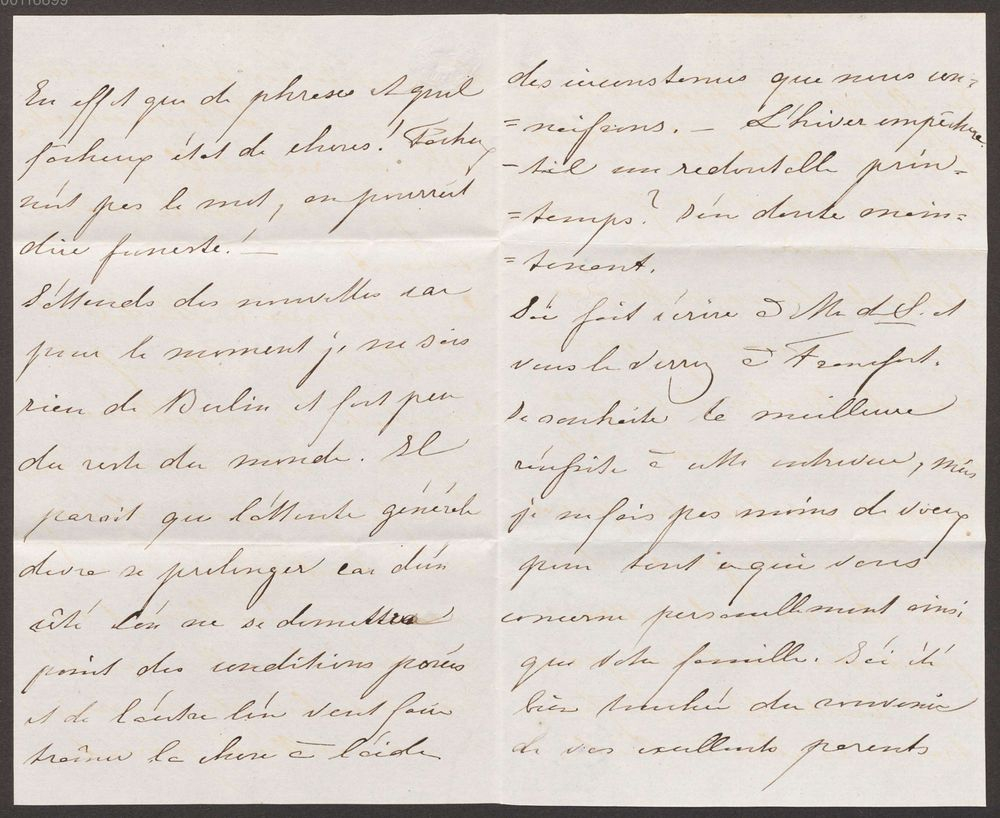 00118899
En effet que de phrases et quel
fâcheux état de choses! Fâcheux
n'est pas le mot, on pourrait
dire funeste! —
J'attends des nouvelles car
pour le moment je ne sais
rien de Berlin et fort peu
du reste du monde. Il
paraît que l'attente générale
devra se prolonger car d'un
côté l'on ne se démettra
point des conditions posées
et de l'autre l'on veut faire
traîner la chose à l'aide
des circonstances que nous con=
=naissons. — L'hiver empêchera
-t-il un redoutable prin=
=temps? J'en doute main=
=tenant.
J'ai fait écrire à M. d. S. et
vous le verrez à Francfort.
Je souhaite la meilleure
réussite à cette entrevue, mais
je ne fais pas moins de voeux
pour tout ce qui vous
concerne personnellement ainsi
que votre famille. J'ai été
bien touchée du souvenir
de vos excellents parents